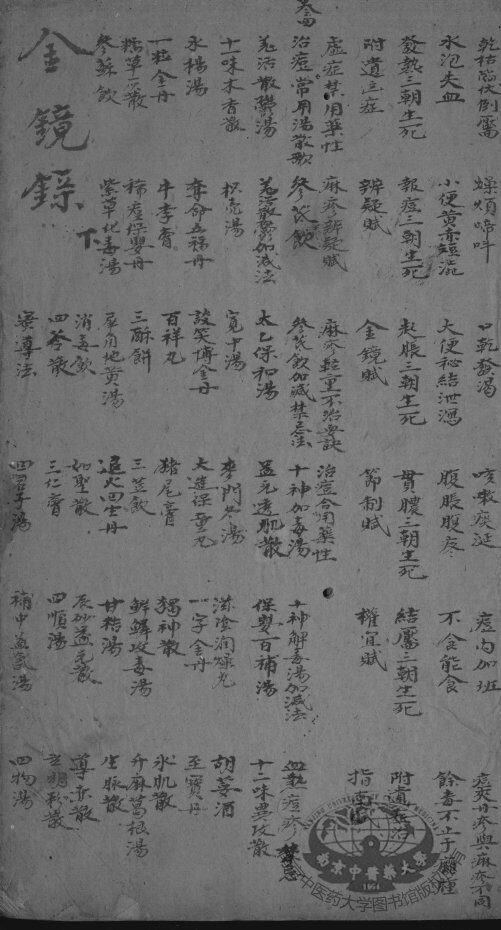 乾枯陷伏倒靨 煩煩啼叫 口乾發渴 咳嗽痰涎 痘內加斑
水泡失血 小便黃赤短澁 大便秘結泄瀉 腹脹腹疼 不食能食 餘毒不止于癰腫
發熱三朝生死 報痘三朝生死 起脹三朝生死 貫膿三朝生死 結靨三朝生死
附遺症 辨疑賦 金鏡賦 節制賦 權宜賦 指南
虛症禁用藥性 麻疹辨疑賦 麻疹輕重不治要訣 治痘合用藥性
治痘常用湯散歌 參芪飲 參芪飲加減禁忌法 十神加毒湯 十神解毒湯加減法 血熱痘疹禁忌
羌活散鬱湯 羌活散鬱加減法 太乙保和湯 益元透肌散 保嬰百補湯 十二味異攻散
十一味木香散 松壳湯 寬中湯 麥門冬湯 滋陰潤燥丸 胡荽酒
水楊湯 奪命五福丹 談笑博金丹 大造保童丸 一字金丹 至寶丹
一粒金丹 牛李膏 百祥丸 猪尾膏 獨神散 氷肌散
三酥餅 三豆飲 鮮鱗攻毒湯 升麻葛根湯
紫草化毒湯 犀角地黃湯 退火回生丹 甘桔湯 生脉散
參蘇飲 消毒飲 如聖散 辰砂益元散 導赤散
四苓散 三仁膏 四順湯
蜜導法 四君子湯 補中益氣湯 四物湯
金鏡錄 下
南京中醫藥大學
1954
京中医药大学图书馆版权所有